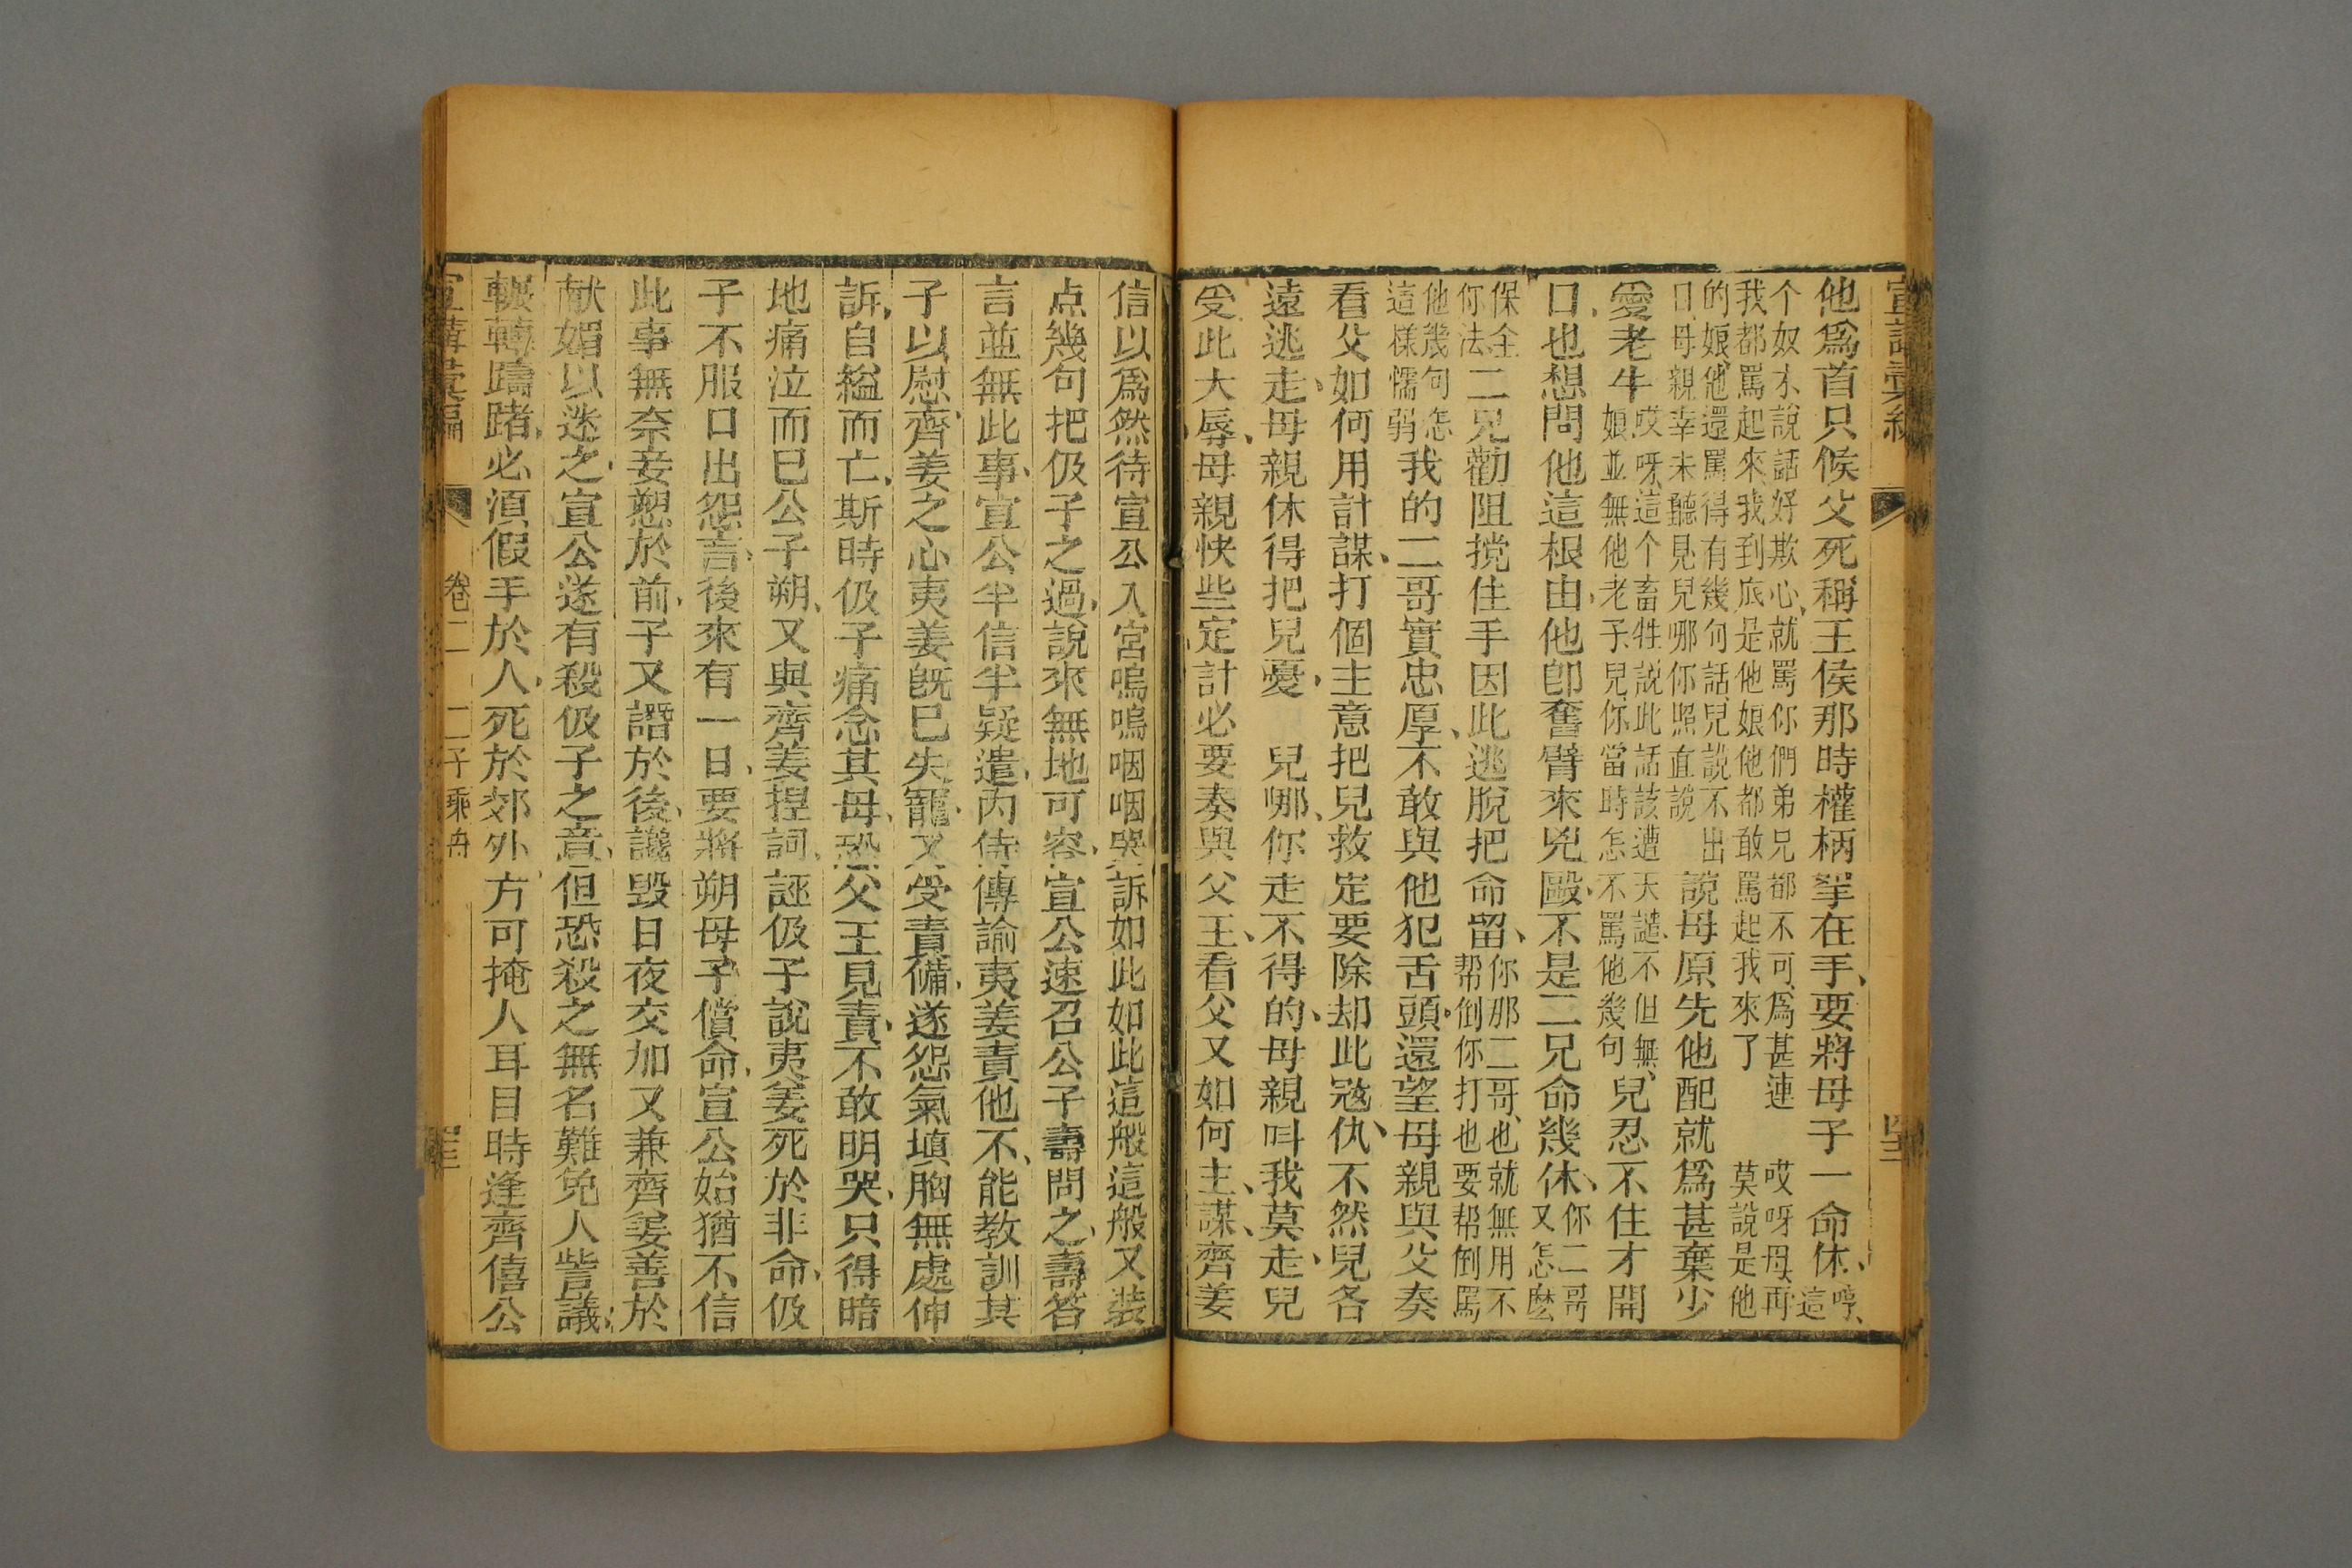 宣講彙編
他爲首只候父死稱王侯那時權柄挐在手要將母子一命休哼這
个奴才說話好欺心就罵你們弟兄都不可爲甚連
我都罵起來我到底是他娘他都敢罵起我來了
哎呀母再
莫說是他
的娘他還罵得有幾句話兒說不出
口母親幸未聽見兒哪你照直說
說母原先他配就爲甚棄少
愛老牛
哎呀這个畜牲說此話該遭天譴不但無
娘並無他老子兒你當時怎不罵他幾句
兒忍不住才開
口也想問他這根由他卽奮臂來兇毆不是二兄命幾休
你二哥
又怎麽
保全
你法
二兄勸阻撓住手因此逃脫把命留
你那二哥也就無用不
帮倒你打也要帮倒罵
他幾句怎
這樣懦弱
我的二哥實忠厚不敢與他犯舌頭還望母親與父奏
看父如何用計謀打個主意把兒救定要除却此寇仇不然兒各
遠逃走母親休得把兒憂　兒哪你走不得的母親叫我莫走兒
受此大辱母親快些定計必要奏與父王看父又如何主謀齊姜
信以爲然待宣公入宮嗚嗚咽咽哭訴如此如此這般這般又裝
点幾句把伋子之過說來無地可容宣公速召公子壽問之壽答
言並無此事宣公半信半疑遣內侍傳諭夷姜責他不能教訓其
子以慰齊姜之心夷姜旣已失寵又受責備遂怨氣塡胸無處伸
訴自縊而亡斯時伋子痛念其母恐父王見責不敢明哭只得暗
地痛泣而已公子朔又與齊姜捏詞誣伋子說夷姜死於非命伋
子不服口出怨言後來有一日要將朔母子償命宣公始猶不信
此事無奈妾愬於前子又譖於後讒毀日夜交加又兼齊姜善於
献媚以迷之宣公遂有殺伋子之意但恐殺之無名難免人訾議
輾轉躊躇必須假手於人死於郊外方可掩人耳目時逢齊僖公
宣講彙編　卷二　二子乘舟